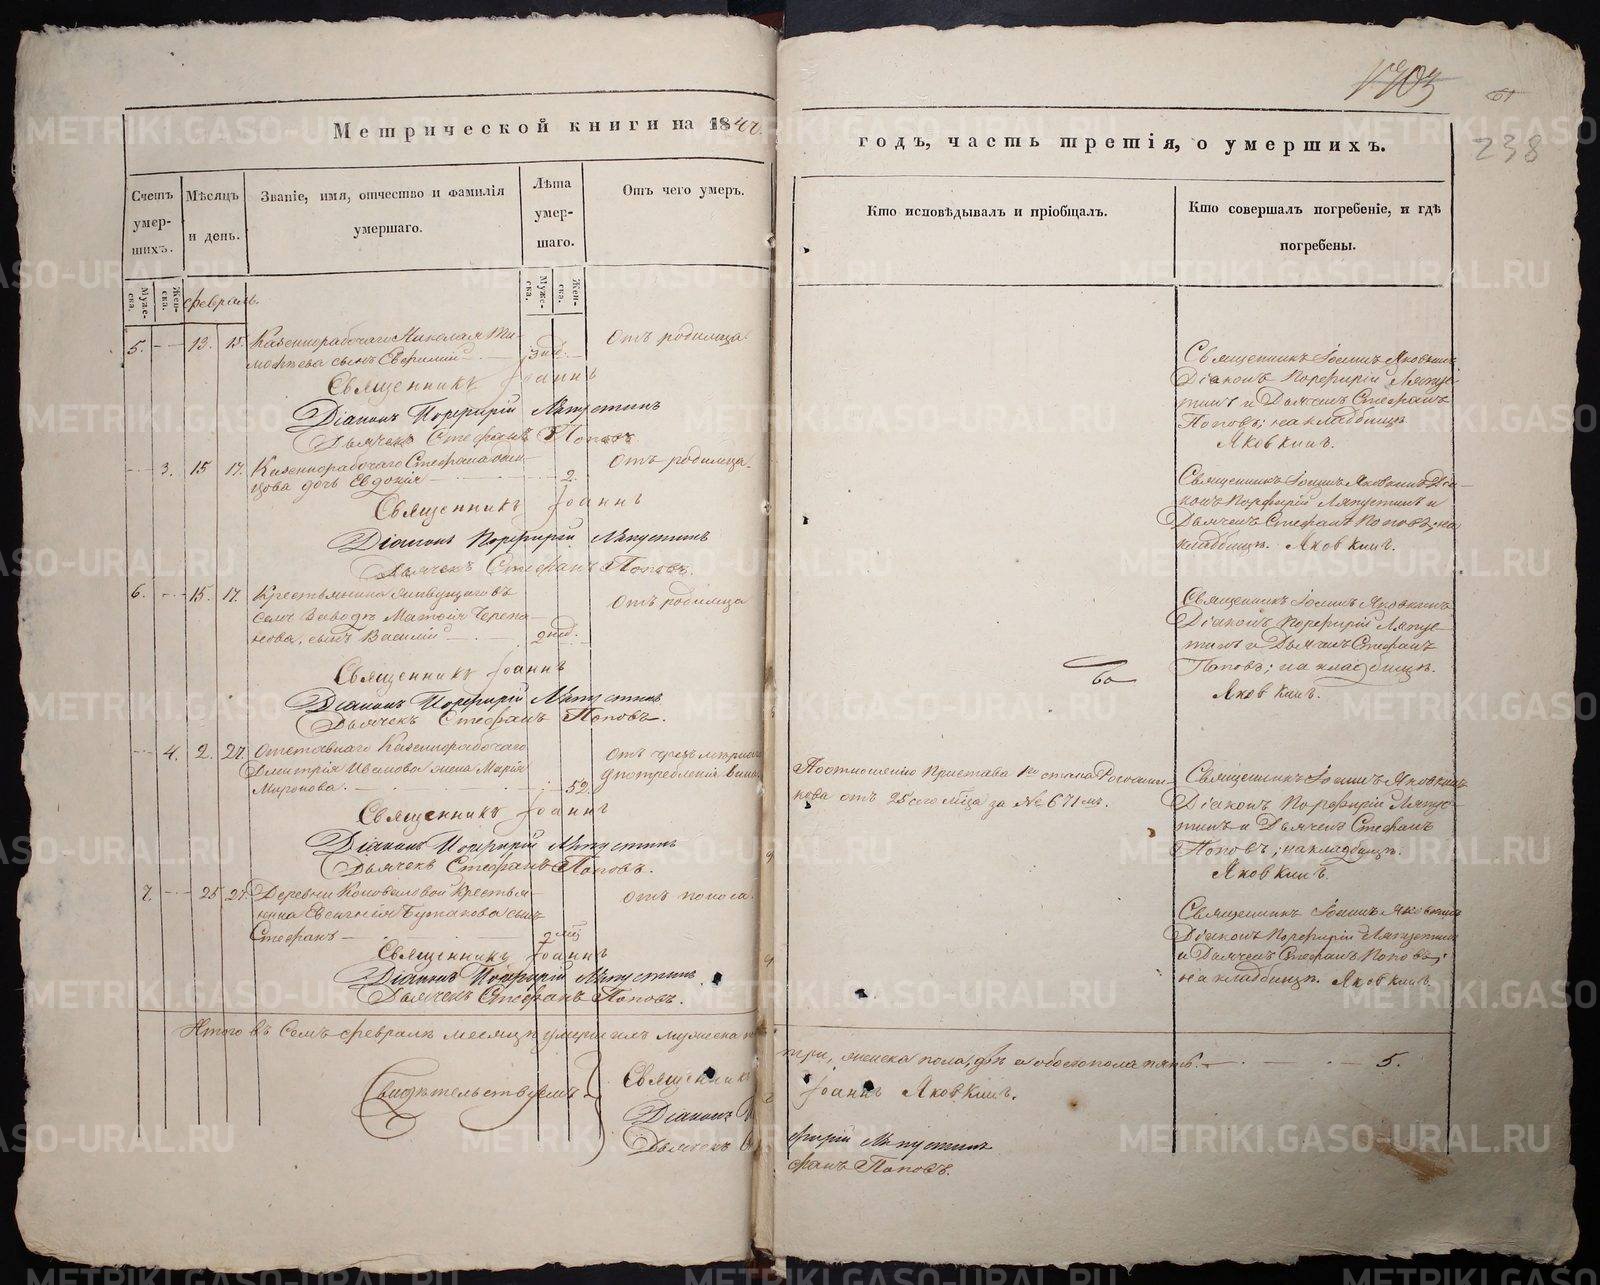 1703
238
Метрической книги на 184
годъ, часть третія, о умершихъ.
Счетъ умер-шихъ.
Мѣсяцъ и день.
Званіе, имя, отчество и фамилія умершаго.
Лѣта умер-шаго.
Отъ чего умеръ.
Кто исповѣдывалъ и пріобщалъ.
Кто совершалъ погребеніе, и гдѣ погребены.
Муже-ска.
Жен-ска.
Муже-ска.
Жен-ска.
февраль
5. 13. 15. Казеннорабочаго Николая Ти-
мофѣева сынъ
Отъ родимца
Священникъ Іоаннъ
Діаконъ Порфирій Ляпустинъ
Дьячекъ Стефанъ Поповъ
Священникъ Іоаннъ Яковкинъ
Діаконъ Порфирій Ляпус-
тинъ и Дьячекъ Стефанъ
Поповъ; на кладбищѣ
Яковкинъ.
3. 15 17. Казеннорабочаго Стефана
дочь Евдокія 2.
Отъ родимца.
Священникъ Іоаннъ
Діаконъ Порфирій Ляпустинъ
Дьячекъ Стефанъ Поповъ.
Священникъ Іоаннъ Яковкинъ Діа-
конъ Порфирій Ляпустинъ и
Дьячекъ Стефанъ Поповъ, на
кладбищѣ. Яковкинъ.
6. 15. 17. Крестьянина живущаго въ
семъ Заводѣ Матвія Черепа-
нова, сынъ Василій
Отъ родимца
Священникъ Іоаннъ
Діаконъ Порфирій Ляпустинъ
Дьячекъ Стефанъ Поповъ.
Священникъ Іоаннъ Яковкинъ
Діаконъ Порфирій Ляпус-
тинъ и Дьячекъ Стефанъ
Поповъ; на кладбищѣ.
Яковкинъ.
4. 2. 27. Отставнаго Казеннорабочаго
Дмитрія Иванова жена Марія
Миронова. 52.
Отъ чрезмѣрнаго
употребленія вина
По отношенію Пристава 1го стана
отъ 25 сего мца за № 671мъ.
Священникъ Іоаннъ
Діаконъ Порфирій Ляпустинъ
Дьячекъ Стефанъ Поповъ.
Священникъ Іоаннъ Яковкинъ
Діаконъ Порфирій Ляпус-
тинъ и Дьячекъ Стефанъ
Поповъ; на кладбищѣ.
Яковкинъ.
7. 25 27. Деревни Коноваловой Крестья-
нина Евгенія Бутакова сынъ
Стефанъ
отъ поноса.
Священникъ Іоаннъ
Діаконъ Порфирій Ляпустинъ
Дьячекъ Стефанъ Поповъ.
Священникъ Іоаннъ Яковкинъ
Діаконъ Порфирій Ляпустинъ
и Дьячекъ Стефанъ Поповъ;
на кладбищѣ. Яковкинъ.
Итого въ семъ февралѣ месяцѣ умершихъ мужеска
три, женска пола, двѣ а обоего пола пять. 5.
Свидѣтельствуемъ
Священникъ Іоаннъ Яковкинъ.
Діаконъ Порфирій Ляпустинъ
Дьячекъ Стефанъ Поповъ.
METRIKI.GASO-URAL.RU